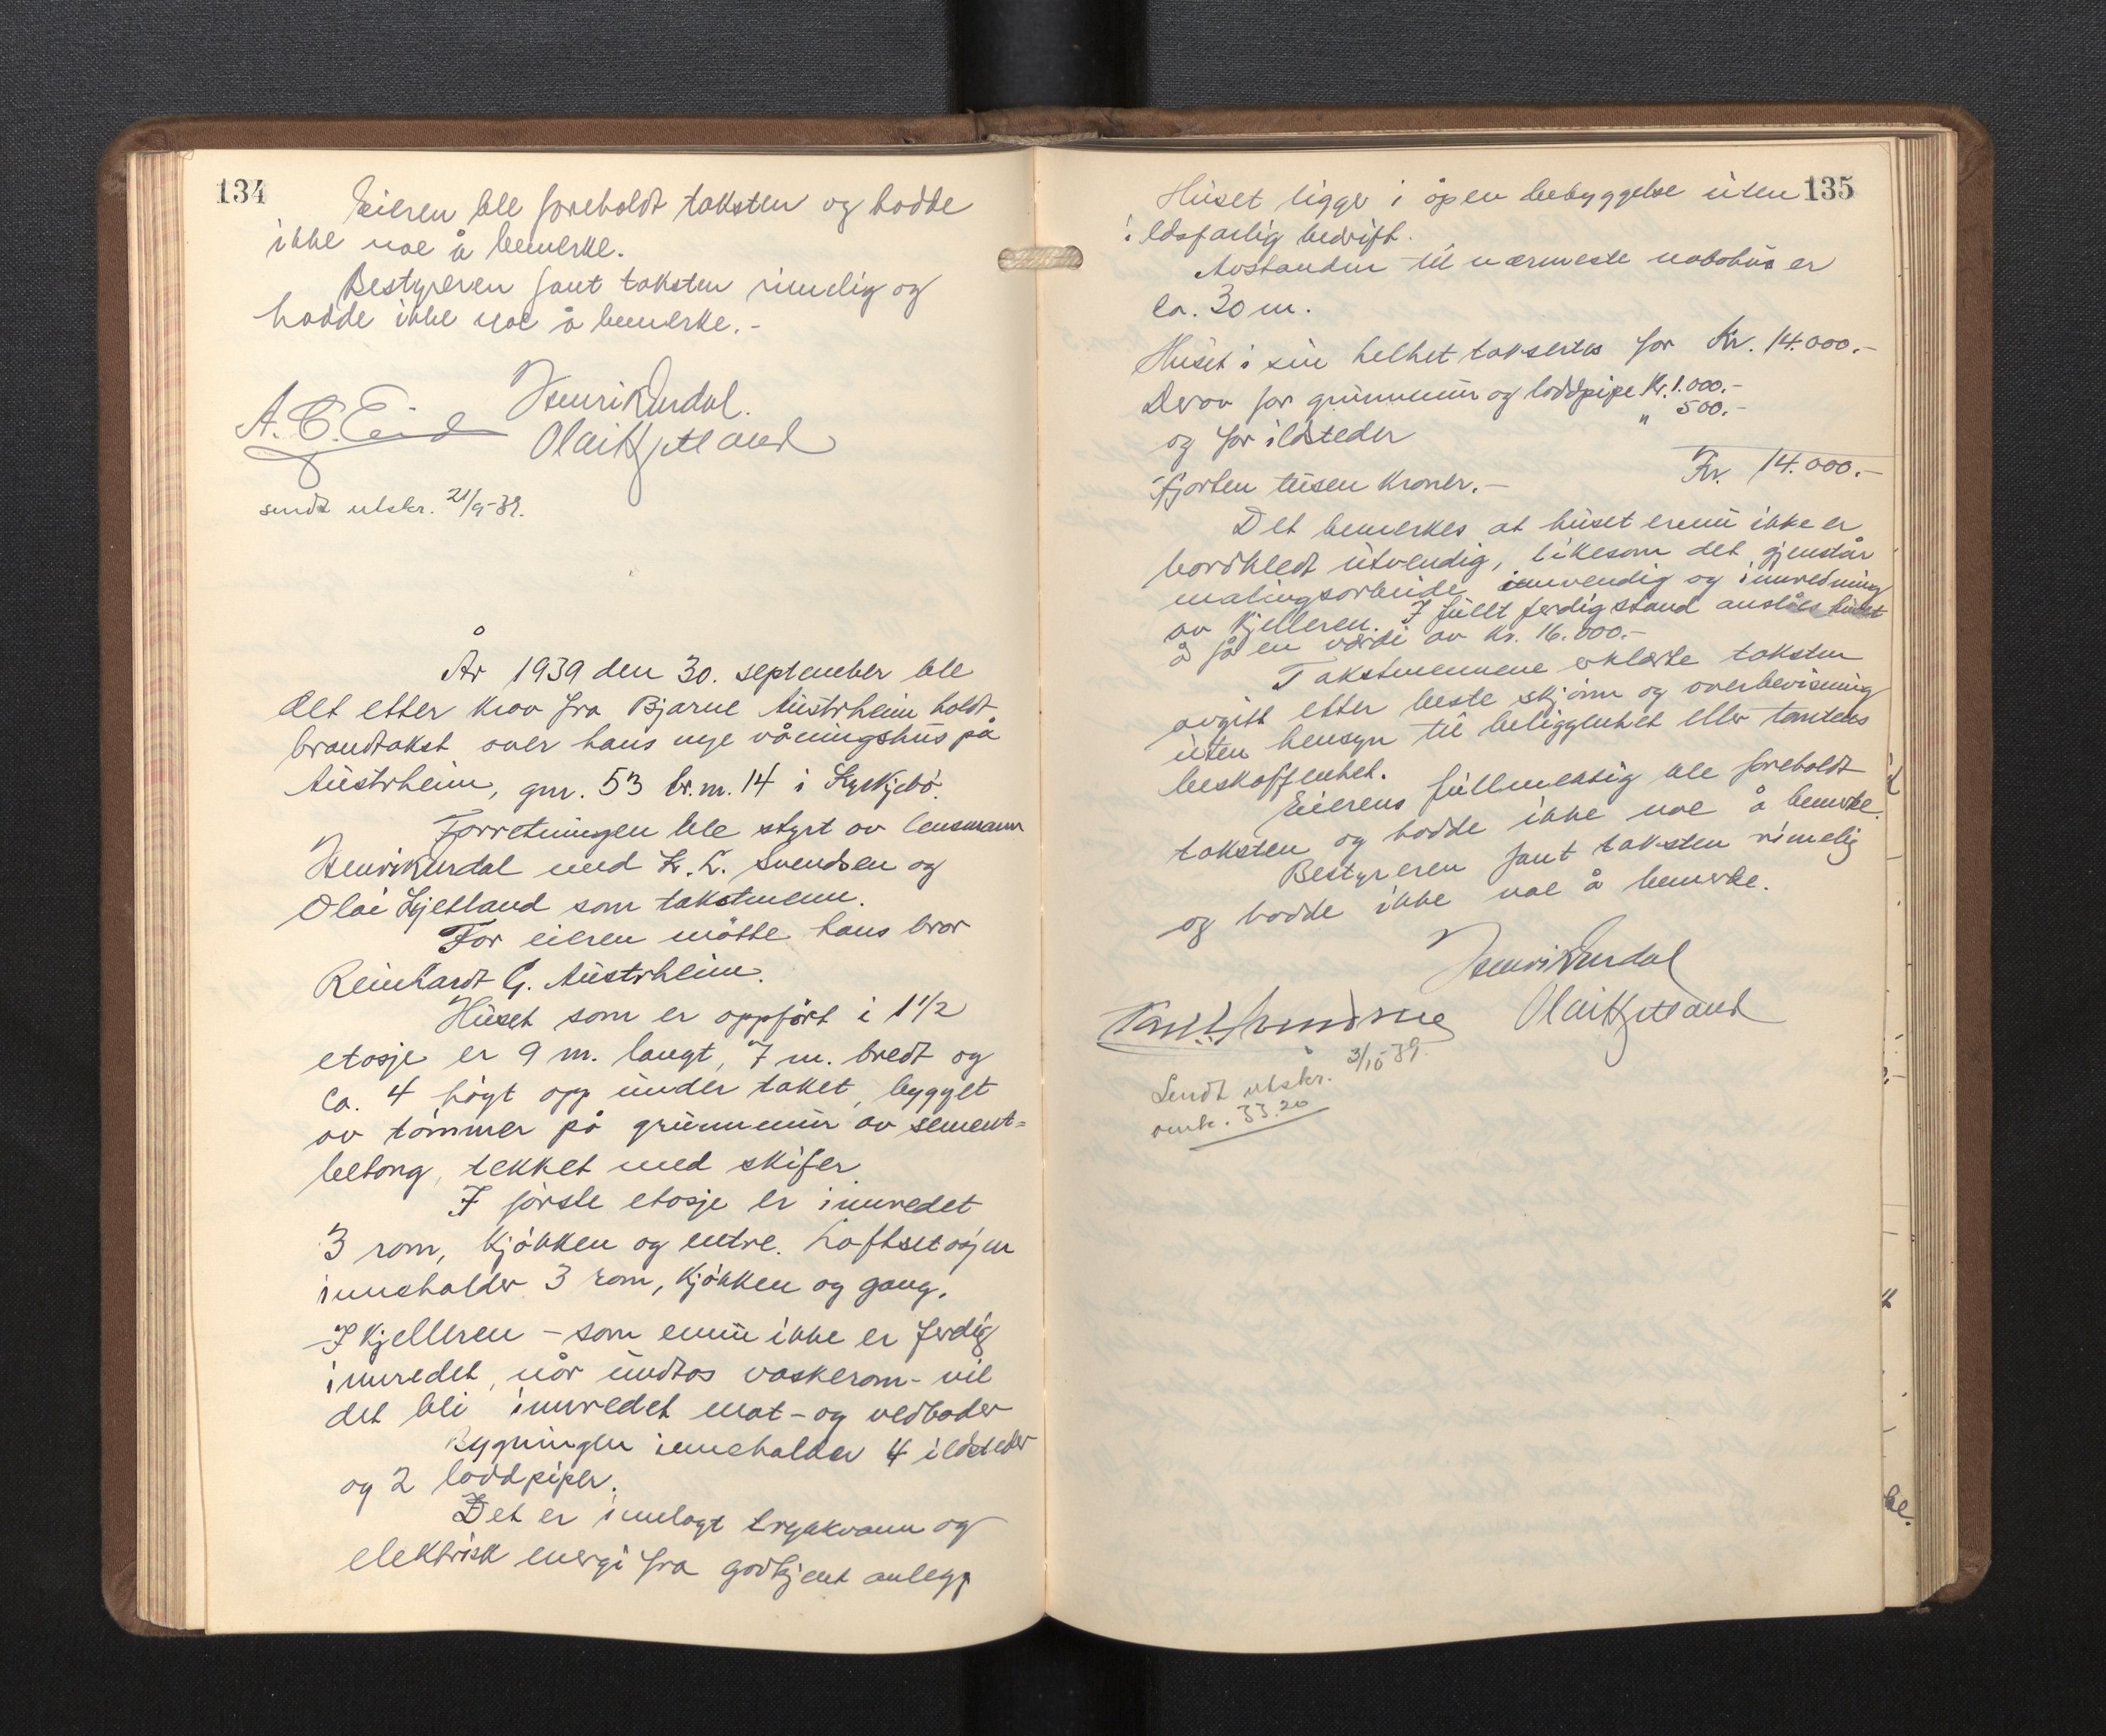 134
Eieren ble foreholdt taksten og hadde
ikke noe å bemerke.
Bestyreren fant taksten rimelig og
hadde ikke noe å bemerke.-
Henrik Urdal.
A. C. Eide
Olai Hjetland
sendt utskr. 21/9-39.
År 1939 den 30. september ble
det etter krav fra Bjarne Austrheim holdt
brandtakst over hans nye våningshus på
Austrheim, gnr. 53 br.nr. 14 i Kyrkjebø.
Forretningen ble styrt av lensmann
Henrik Urdal med K. L. Svendsen og
Olai Hjetland som takstmenn.
For eieren møtte hans bror
Reinhardt G. Austrheim.
Huset som er oppført i 1 1/2
etasje er 9 m. langt, 7 m. bredt og
ca. 4 høgt opp under taket, bygget
av tømmer på grunnmur av sement=
betong, tekket med skifer.
I første etasje er innredet
3 rom, kjøkken og entre. Loftsetasjen
inneholder 3 rom, kjøkken og gang.
I kjelleren - som ennu ikke er ferdig
innredet, når undtas vaskerom - vil
det bli innredet mat- og vedboder
Bygningen inneholder 4 ildsteder
og 2 loddpiper.
Det er innlagt trykkvann og
elektrisk energi fra godkjent anlegg
135
Huset ligger i åpen bebyggelse uten
ildsfarlig bedrift.
Avstanden til nærmeste nabohus er
ca. 30 m.
Huset i sin helhet takseres for Kr. 14.000.-
Derav for grunnmur og loddpipe Kr. 1.000.-
og for ildsteder " 500.-
Fjorten tusen kroner.- Kr. 14.000.-
Det bemerkes at huset ennu ikke er
bordkledt utvendig, likesom det gjenstår
malingsarbeide innvendig og innredning
av kjelleren. I fullt ferdig stand anslåes huset
å få en værdi av kr. 16.000.-
Takstmennene erklærte taksten
avgitt etter beste skjønn og overbevisning
uten hensyn til beliggenhet eller tomtens
beskaffenhet.
Eierens fullmektig ble foreholdt
taksten og hadde ikke noe å bemerke.
Bestyreren fant taksten rimelig
og hadde ikke noe å bemerke.
Henrik Urdal
Olai Hjetland
Sendt utskr. 3/10-39.
omk. 33.20